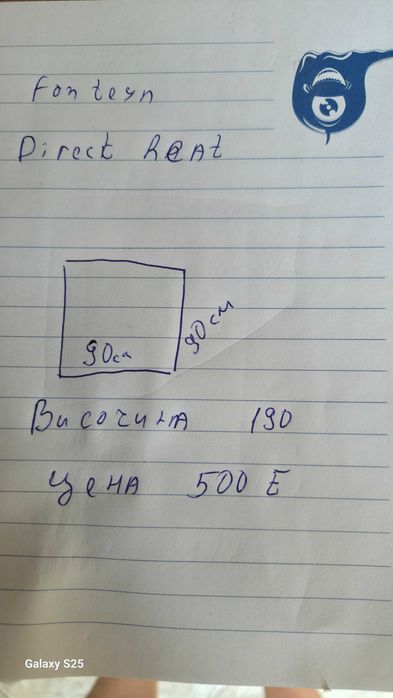 Fonteyn
Direct heat
90см
90см
Височина 190
Цена 500 E
Galaxy S25